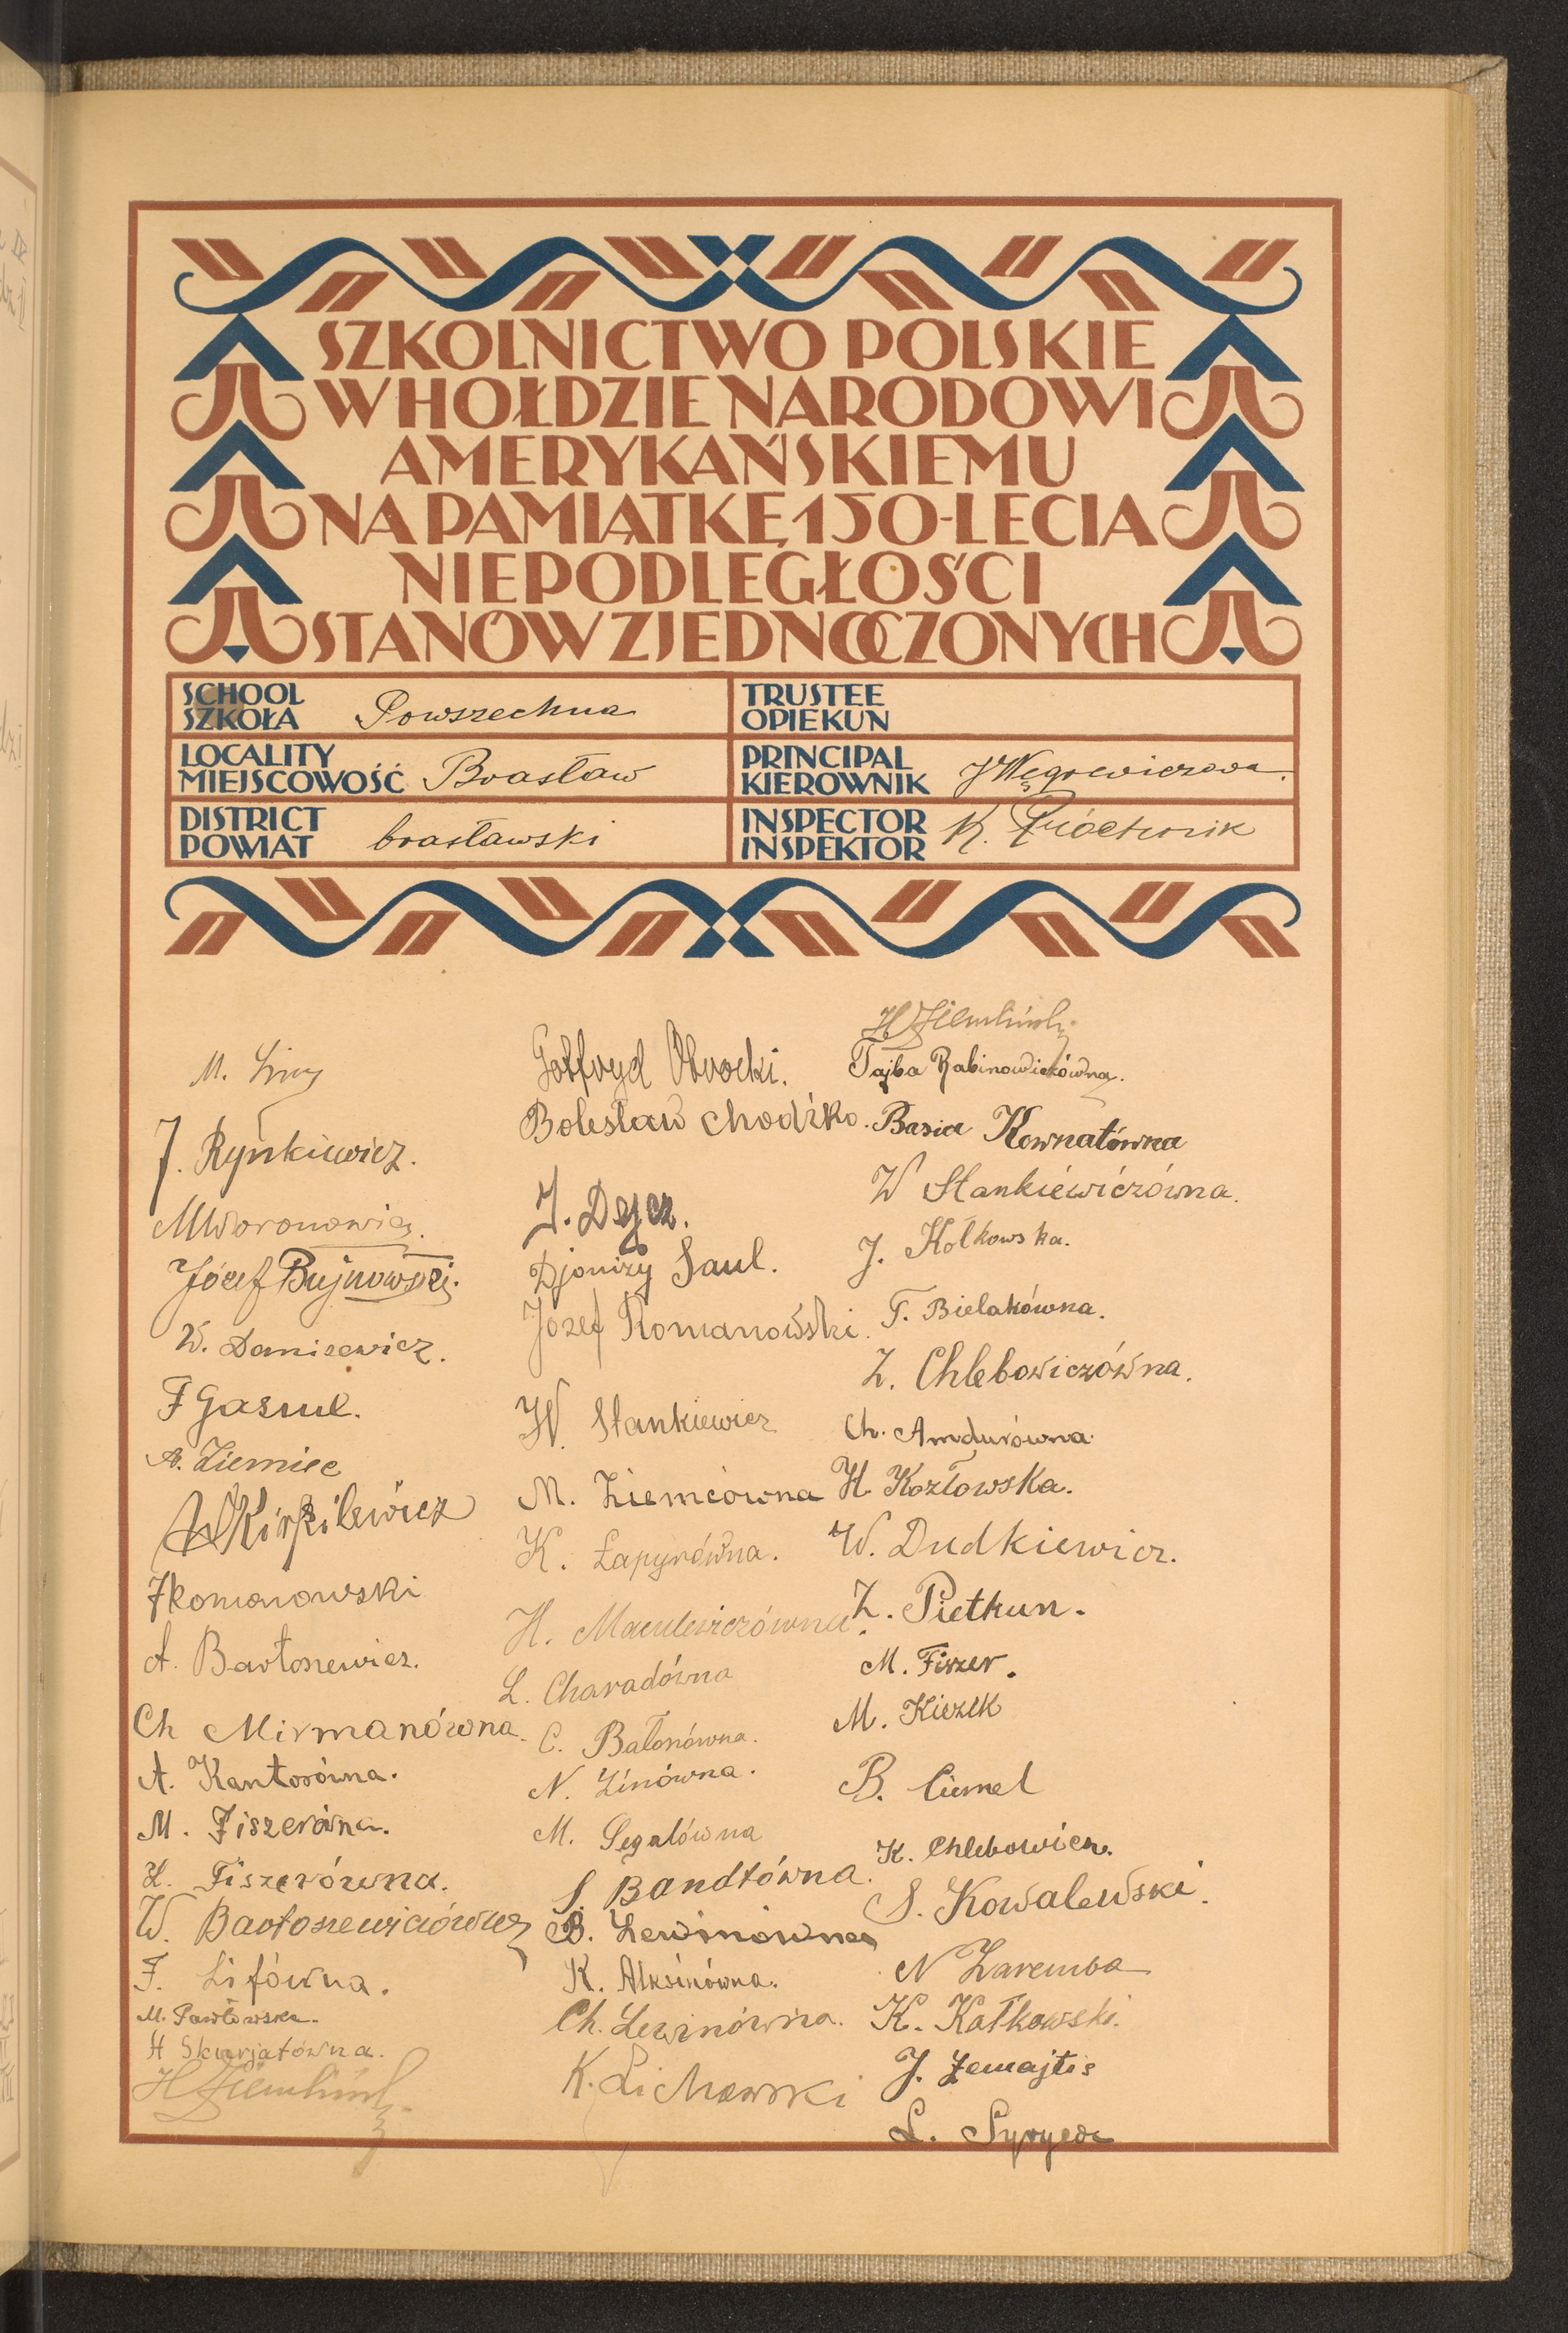 SZKOLNICTWO POLSKIE
W HOŁDZIE NARODOWI
AMERYKAŃSKIEMU
NA PAMIĄTKĘ 150-LECIA
NIEPODLEGŁOŚCI
STANÓW ZJEDNOCZONYCH
SCHOOL
SZKOŁA Powszechna
TRUSTEE
OPIEKUN
LOCALITY
MIEJSCOWOŚĆ Brasław
PRINCIPAL
KIEROWNIK
DISTRICT
POWIAT brasławski
INSPECTOR
INSPEKTOR K.
M.
J. Rynkiewicz.
M Woronowicz.
Józef Bujnowski.
W. Danisewicz.
F Gasiul.
A. Ziemiec
W Kirpilewicz
J Romanowski
A. Bartosewicz.
Ch Mirmanówna.
A. Kantorówna.
M. Fiszerówna.
L. Fiszerówna.
W. Bartoszewiczówna
F. Lifówna.
M. Pawłowska.
H Skurjatówna.
Gotfryd Obrocki.
Bolesław Chodźko.
J. Dejcz.
Djonizy Saul.
Józef Romanowski.
W. Stankiewicz
M. Ziemcówna
K. Łapyrówna.
H. Maculewiczówna.
L. Charadówna
C. Batonówna.
N. Zinówna.
M. Segalówna
S. Bandtówna.
B. Lewinówna
K. Alksinówna.
Ch. Lewinówna.
K. Lichowski
Tajba Rabinowiczówna.
Basia Kownatówna
W Stankiewiczówna.
J. Kołkowska.
T. Bielakówna.
Z. Chlebowiczówna.
Ch. Amdurówna.
H Kozłowska.
W. Dudkiewicz.
Z. Pietkun.
M. Fiszer.
M. Kiezik
B. Cimel
K. Chlebowicz.
S. Kowalewski.
N Zaremba
K. Kałkowski.
J. Żemajtis
L.